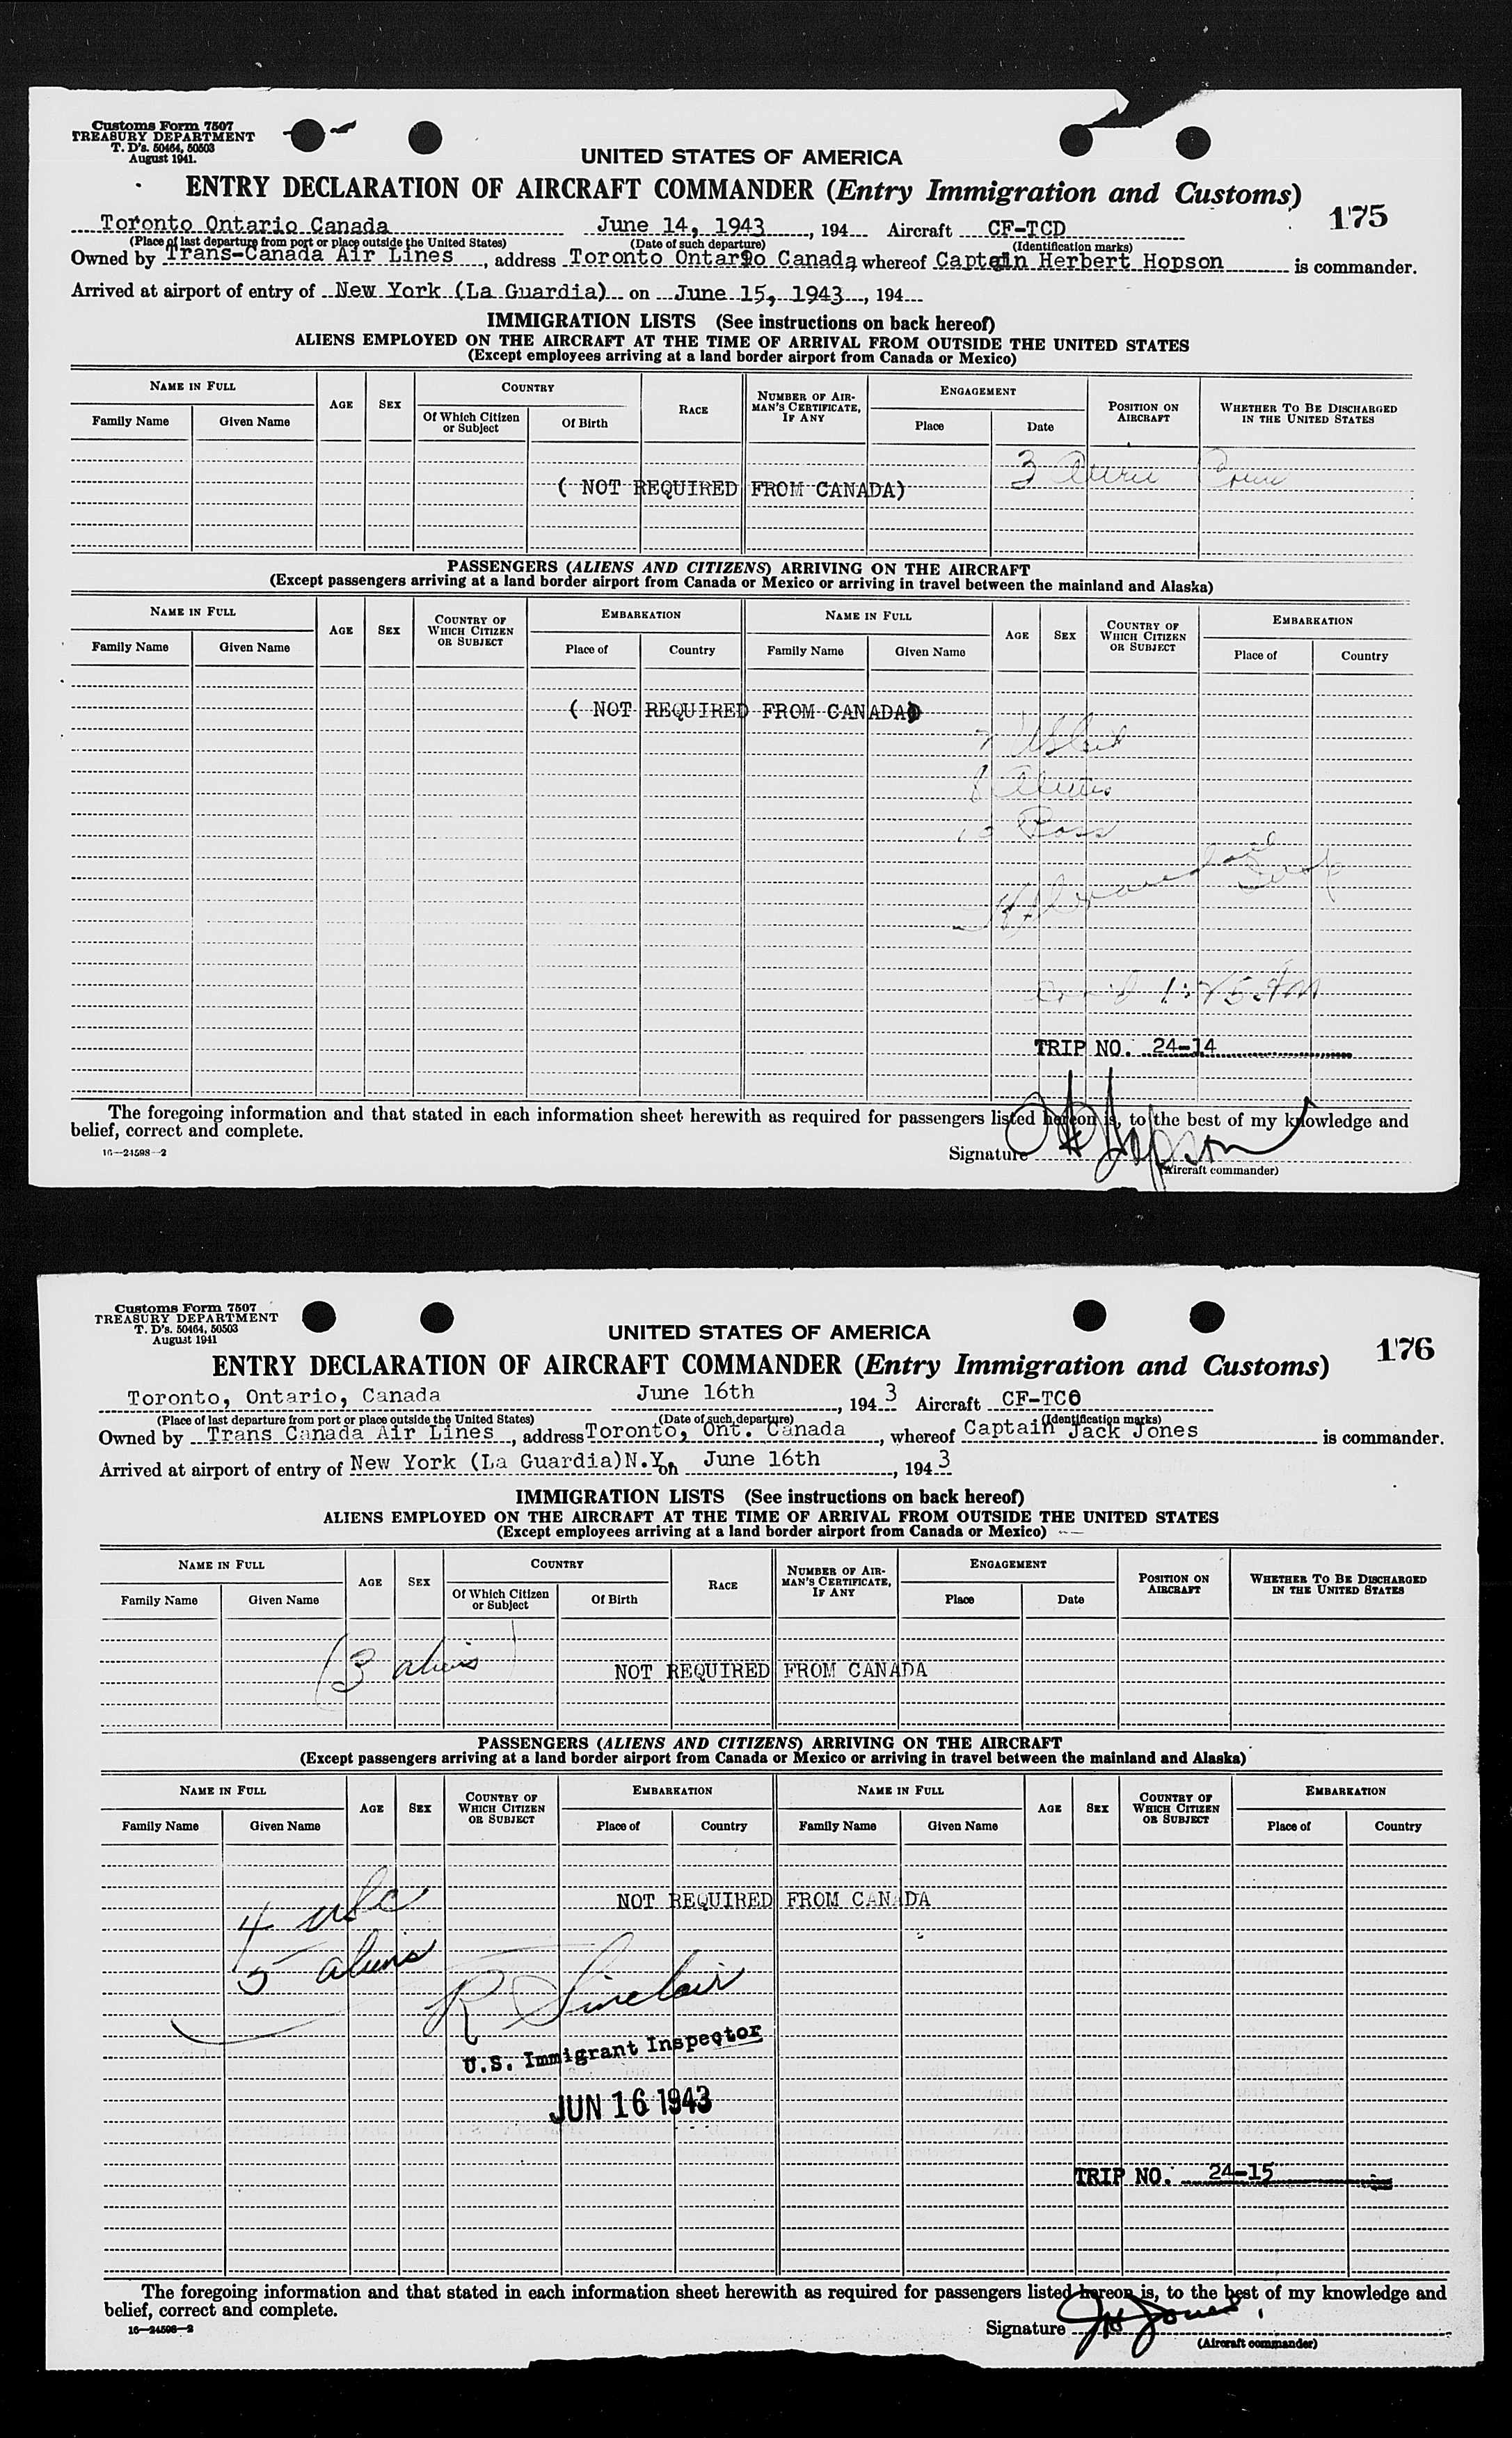 Customs Form 7507
TREASURY DEPARTMENT
T. D's. 50464, 50503
August 1941.
UNITED STATES OF AMERICA
ENTRY DECLARATION OF AIRCRAFT COMMANDER (Entry Immigration and Customs)
175
Toronto Ontario Canada June 14, 1943, 194 Aircraft CF-TCD
(Place of last departure from port or place outside the United States) (Date of such departure) (Identification marks)
Owned by Trans-Canada Air Lines, address Toronto Ontario Canada whereof Captain Herbert Hopson is commander.
Arrived at airport of entry of New York (La Guardia) on June 15, 1943, 194
IMMIGRATION LISTS (See instructions on back hereof)
ALIENS EMPLOYED ON THE AIRCRAFT AT THE TIME OF ARRIVAL FROM OUTSIDE THE UNITED STATES
(Except employees arriving at a land border airport from Canada or Mexico)
NAME IN FULL AGE SEX COUNTRY RACE NUMBER OF AIRMAN'S CERTIFICATE, IF ANY ENGAGEMENT POSITION ON AIRCRAFT WHETHER TO BE DISCHARGED IN THE UNITED STATES
Family Name Given Name Of Which Citizen or Subject Of Birth Place Date
3 Crew
( NOT REQUIRED FROM CANADA)
PASSENGERS (ALIENS AND CITIZENS) ARRIVING ON THE AIRCRAFT
(Except passengers arriving at a land border airport from Canada or Mexico or arriving in travel between the mainland and Alaska)
NAME IN FULL AGE SEX COUNTRY OF WHICH CITIZEN OR SUBJECT EMBARKATION NAME IN FULL AGE SEX COUNTRY OF WHICH CITIZEN OR SUBJECT EMBARKATION
Family Name Given Name Place of Country Family Name Given Name Place of Country
( NOT REQUIRED FROM CANADA)
Aliens
Pass
Insp
1:25 AM
TRIP NO. 24-14
The foregoing information and that stated in each information sheet herewith as required for passengers listed hereon is, to the best of my knowledge and
belief, correct and complete.
16—24598-2
Signature H Hopson
(Aircraft commander)
Customs Form 7507
TREASURY DEPARTMENT
T. D's. 50464, 50503
August 1941
UNITED STATES OF AMERICA
ENTRY DECLARATION OF AIRCRAFT COMMANDER (Entry Immigration and Customs)
176
Toronto, Ontario, Canada June 16th, 1943 Aircraft CF-TCO
(Place of last departure from port or place outside the United States) (Date of such departure) (Identification marks)
Owned by Trans Canada Air Lines, address Toronto, Ont. Canada, whereof Captain Jack Jones is commander.
Arrived at airport of entry of New York (La Guardia) N.Y. on June 16th, 1943
IMMIGRATION LISTS (See instructions on back hereof)
ALIENS EMPLOYED ON THE AIRCRAFT AT THE TIME OF ARRIVAL FROM OUTSIDE THE UNITED STATES
(Except employees arriving at a land border airport from Canada or Mexico)
NAME IN FULL AGE SEX COUNTRY RACE NUMBER OF AIRMAN'S CERTIFICATE, IF ANY ENGAGEMENT POSITION ON AIRCRAFT WHETHER TO BE DISCHARGED IN THE UNITED STATES
Family Name Given Name Of Which Citizen or Subject Of Birth Place Date
(3 aliens) NOT REQUIRED FROM CANADA
PASSENGERS (ALIENS AND CITIZENS) ARRIVING ON THE AIRCRAFT
(Except passengers arriving at a land border airport from Canada or Mexico or arriving in travel between the mainland and Alaska)
NAME IN FULL AGE SEX COUNTRY OF WHICH CITIZEN OR SUBJECT EMBARKATION NAME IN FULL AGE SEX COUNTRY OF WHICH CITIZEN OR SUBJECT EMBARKATION
Family Name Given Name Place of Country Family Name Given Name Place of Country
4 usc NOT REQUIRED FROM CANADA
5 aliens
R Sinclair
U.S. Immigrant Inspector
JUN 16 1943
TRIP NO. 24-15
The foregoing information and that stated in each information sheet herewith as required for passengers listed hereon is, to the best of my knowledge and
belief, correct and complete.
16—24598-2
Signature JH Jones
(Aircraft commander)